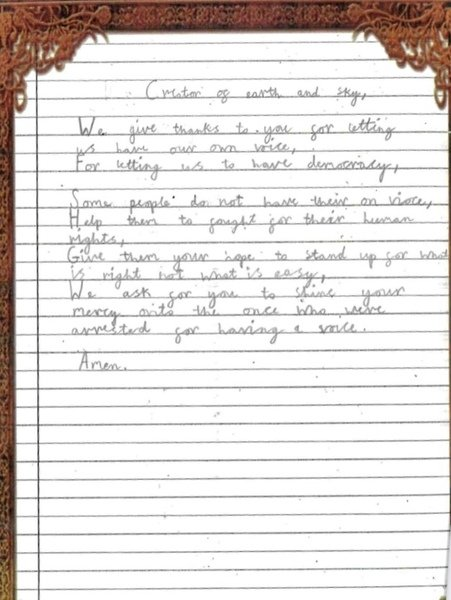 Creator of earth and sky,
We give thanks to you for letting
us have our own voice,
For letting us to have democracy,
Some people do not have their on vioce,
Help them to fought for their human
rights,
Give them your hope to stand up for what
is right not what is easy,
We ask for you to shine your
mercy onto the once who were
arrested for having a voice.
Amen.